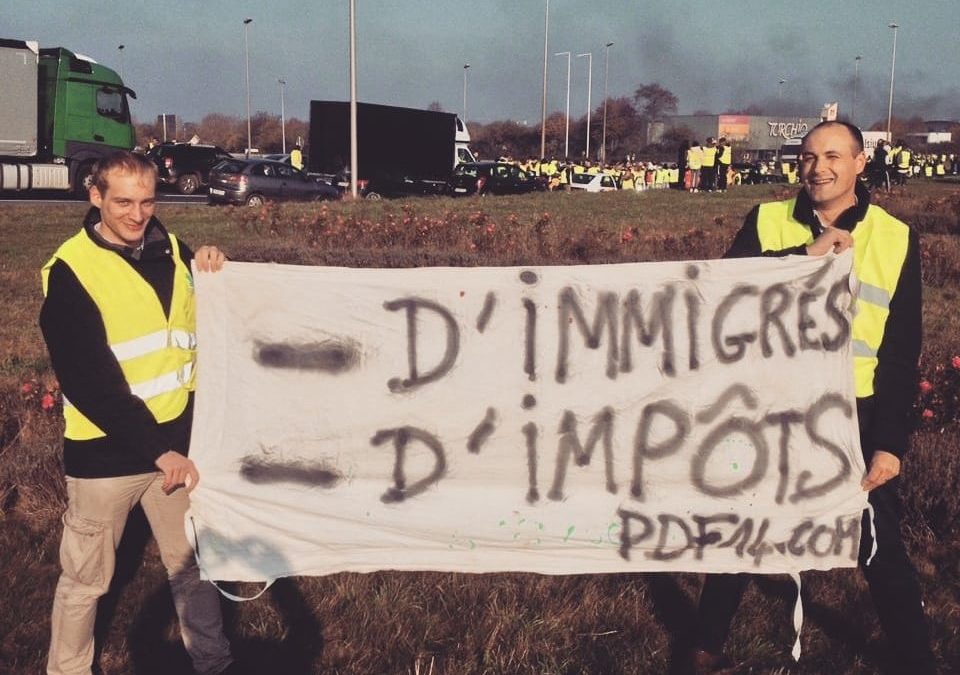 TURCHI
- D'IMMIGRÉS
- D'IMPÔTS
PDF14.COM